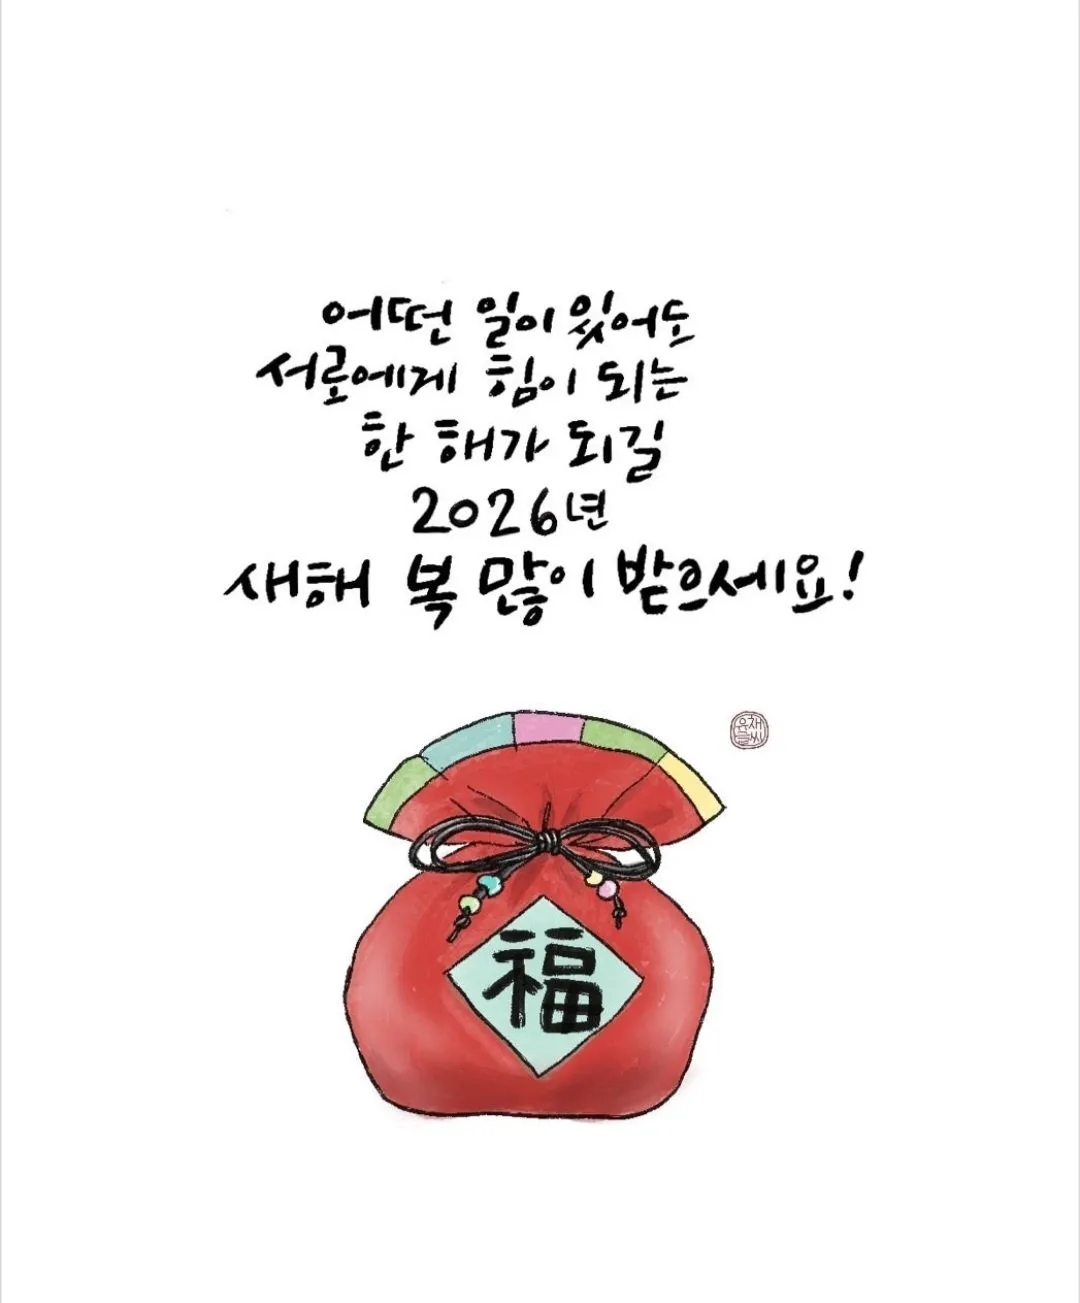 어떤 일이 있어도
서로에게 힘이 되는
한 해가 되길
2026년
새해 복 많이 받으세요!
福